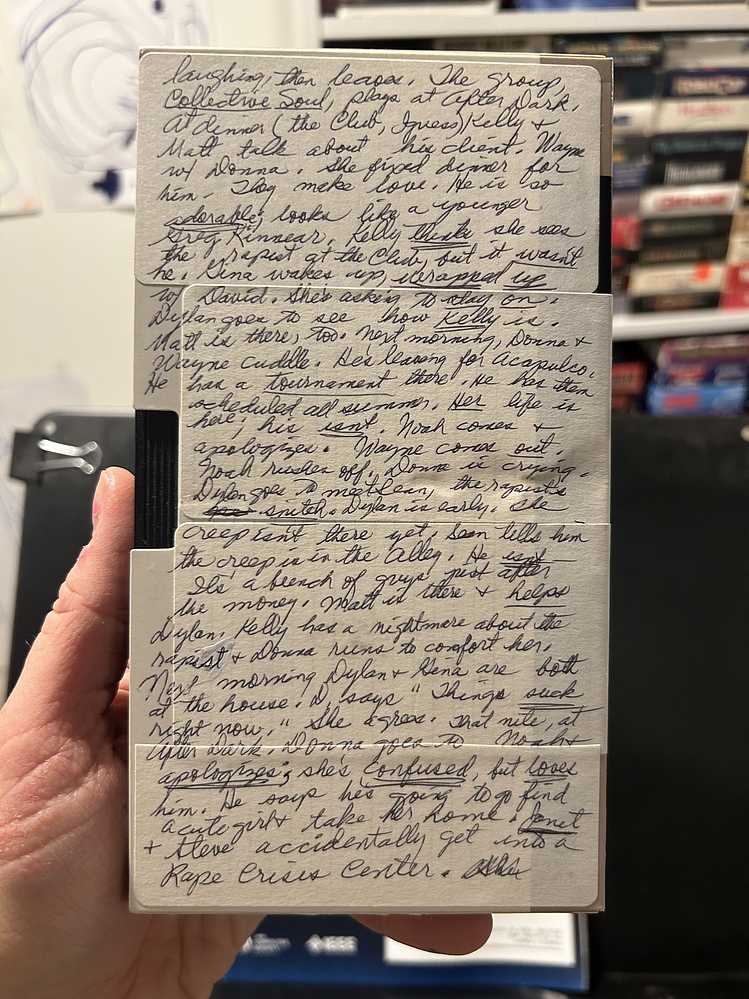 laughing, then leaves. The group,
Collective Soul, plays at After Dark.
At dinner (the Club, I guess) Kelly +
Matt talk about his client. Wayne
w/ Donna. She fixed dinner for
him. They make love. He is so
adorable; looks like a younger
Greg Kinnear. Kelly thinks she sees
the rapist at the Club, but it wasn't
he. Gina wakes up, wrapped up
w/ David. She's asking to stay on.
Dylan goes to see how Kelly is.
Matt is there, too. Next morning, Donna +
Wayne cuddle. He's leaving for Acapulco.
He has a tournament there. He has them
scheduled all summer. Her life is
here; his isn't. Noah comes +
apologizes. Wayne comes out.
Noah rushes off. Donna is crying.
Dylan goes to meet Sean, the rapist's
snitch. Dylan is early. The
creep isn't there yet. Sean tells him
the creep is in the Alley. He isn't
It's a bunch of guys just after
the money. Matt is there + helps
Dylan. Kelly has a nightmare about the
rapist + Donna runs to comfort her.
Next morning Dylan + Gina are both
at the house. D. says "Things suck
right now." She agrees. That nite, at
After Dark, Donna goes to Noah +
apologizes; she's confused, but loves
him. He says he's going to go find
a cute girl + take her home. Janet
+ Steve accidentally get into a
Rape Crisis Center.